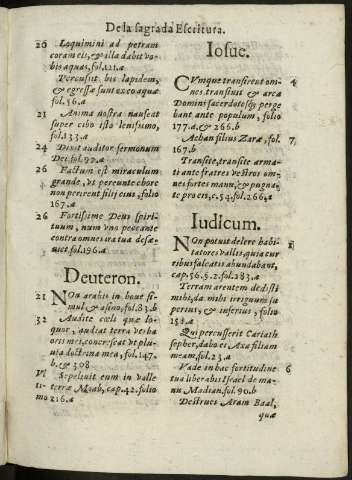 De la sagrada Escritura.
20 Loquimini ad petram
coram eis, & illa dabit vo-
bis aquas, fol. 121. a
Percussit bis lapidem,
& egressæ sunt exco aquæ
fol. 56. a
21 Anima nostra nauseat
super cibo isto leuissimo,
fol. 133. a
24 Dixit auditor sermonum
Dei. fol. 97. a
26 Factum est miraculum
grande, vt pereunte chore
non perirent filij eius, folio
167. a
26 Fortissime Deus spiri-
tuum, num vno peccante
contra omnes ira tua desæ-
uiet. fol. 196. a
Deuteron.
21 NOn arabis in boue si-
mul & asino, fol. 83. b
32 Audite cœli quæ lo-
quor, audiat terra verba
oris mei, concrescat vt plu-
uia doctrina mea, fol. 147.
b. & 308
Vl Sepeliuit eum in valle
terræ Moab, cap. 42. folio
mo 216. a
Iosue.
CVmque transirent om- 4
nes, transiuit & arca
Domini sacerdotesq; perge
bant ante populum, folio
177. a, & 266. b
Achan filius Zaræ, fol. 7
167. b
Transite, transite arma-
ti ante fratres vestros om-
nes fortes manu, & pugna-
te pro eis, c. 54. fol. 266. a
Iudicum.
NOn potuit delere habi- 1
tatores vallis, quia cur
ribus falcatis abundabant,
cap. 56. §. 2. fol. 283. a
Terram arentem dedisti
mihi, da mihi irriguum su
perius, & inferius, folio
151. a
Qui percusserit Cariath
sepher, dabo ei Axa filiam
meam, fol. 23. a
Vade in hac fortitudine 6
tua liberabis Israel de ma-
nu Madian. fol. 90. b
Destruct Aram Baal,
quæ